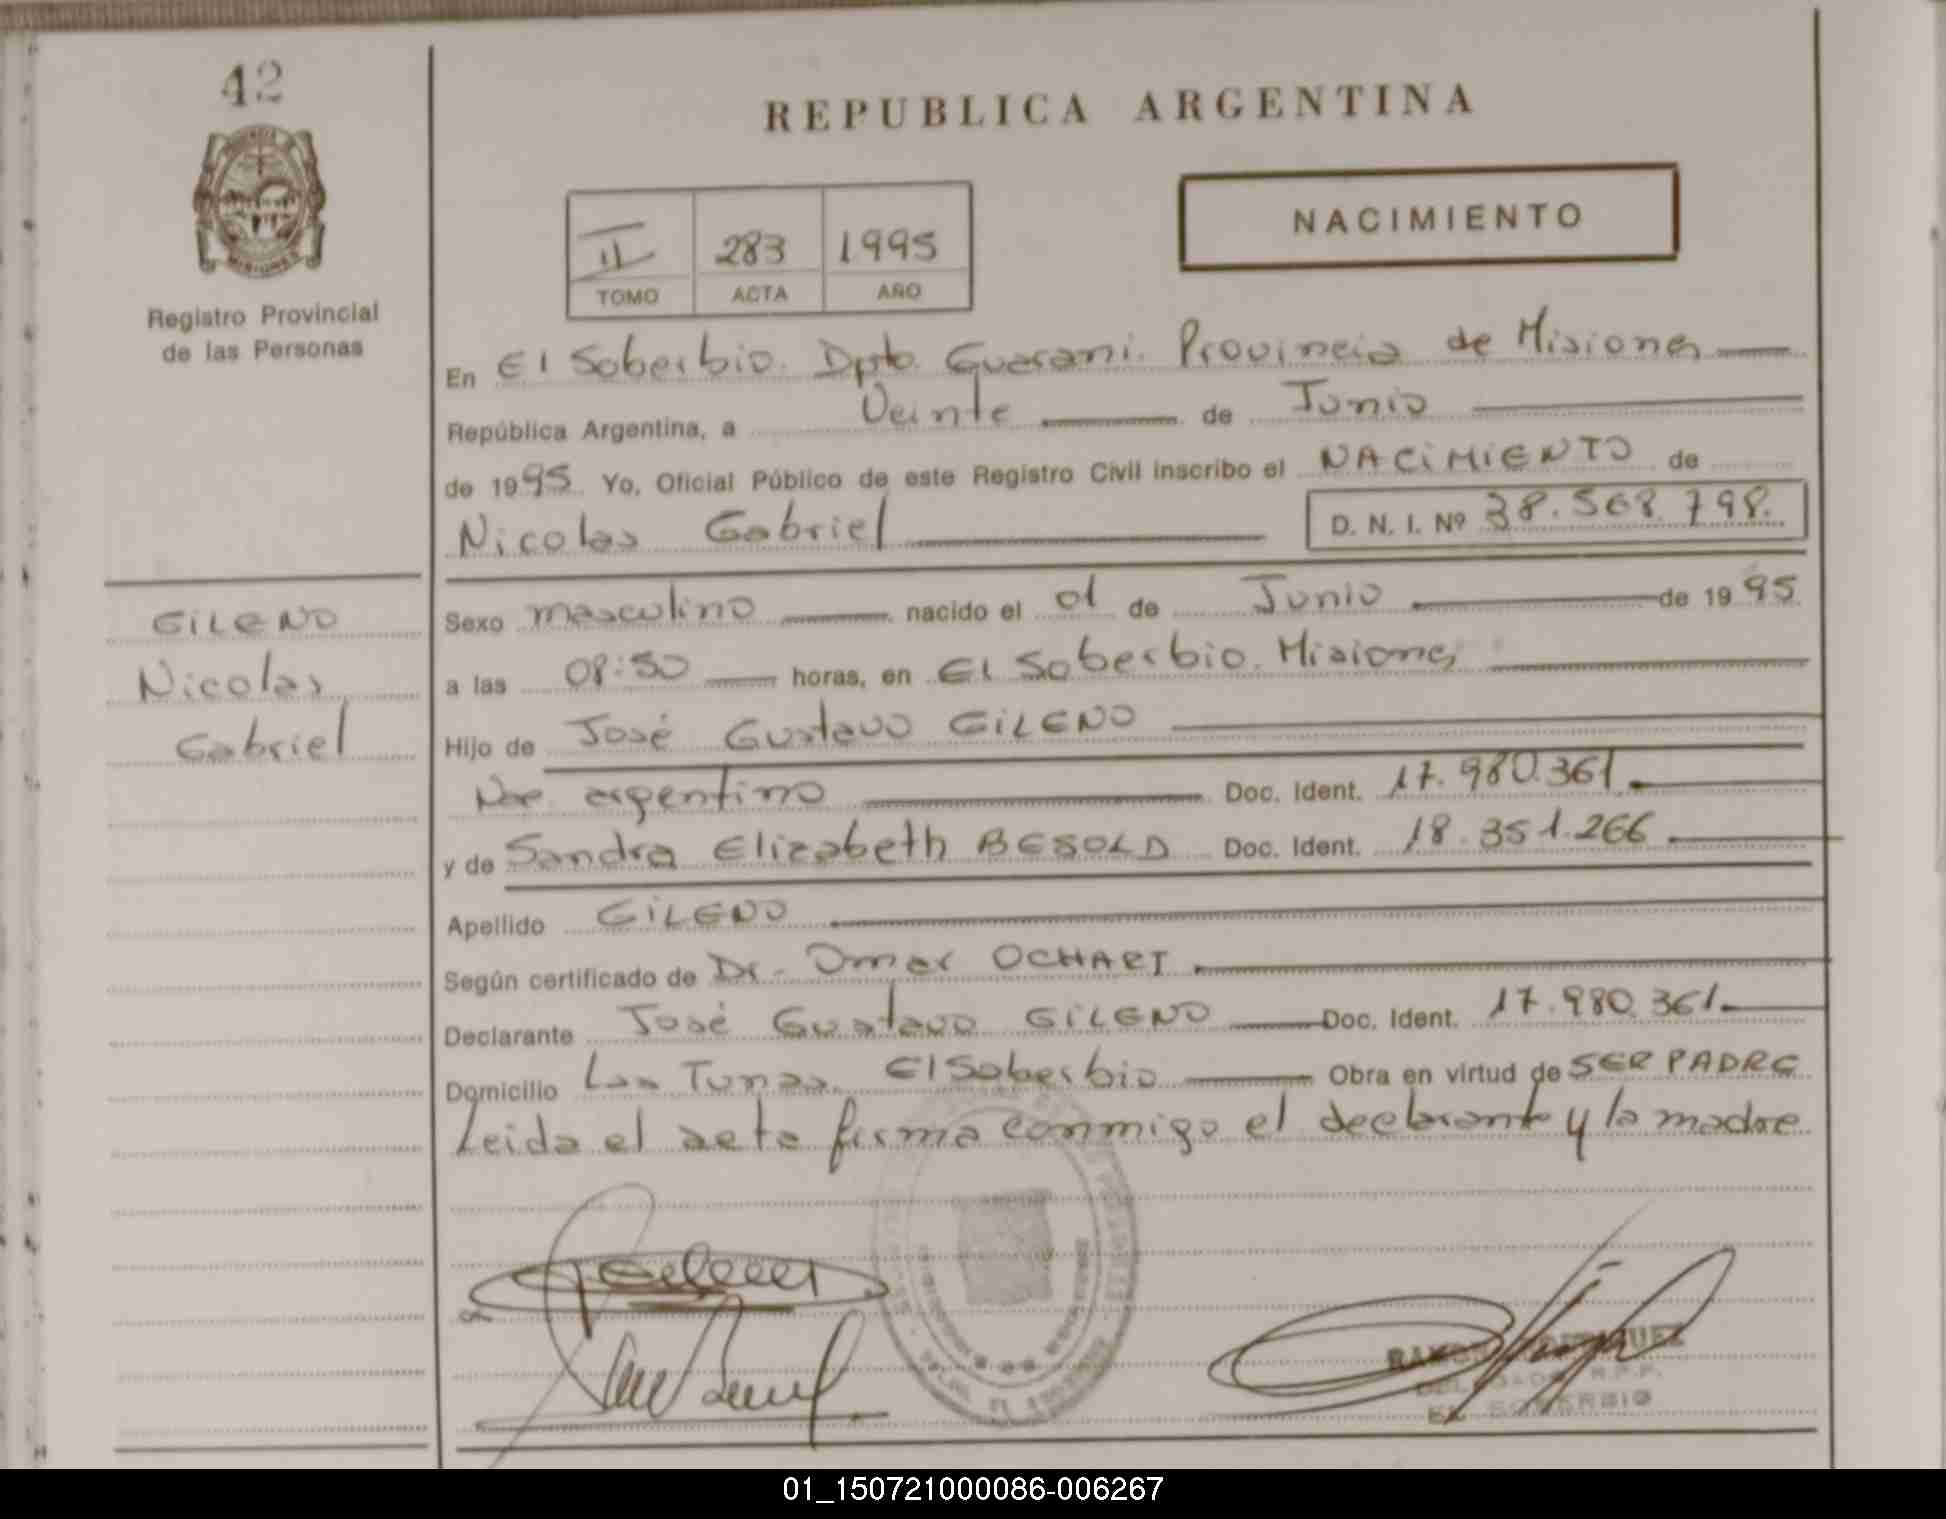 42
REPUBLICA ARGENTINA
NACIMIENTO
II 283 1995
TOMO ACTA AÑO
MISIONES
Registro Provincial
de las Personas
En El Soberbio. Dpto. Guarani. Provincia de Misiones
República Argentina, a Veinte de Junio
de 1995. Yo, Oficial Público de este Registro Civil inscribo el NACIMIENTO de
Nicolas Gabriel D. N. I. Nº 38.568.798.
GILENO
Nicolas
Gabriel
Sexo masculino nacido el 01 de Junio de 1995
a las 08:50 horas, en El Soberbio. Misiones
Hijo de José Gustavo GILENO
Nac. argentino Doc. Ident. 17.980.361.
y de Sandra Elizabeth BESOLD Doc. Ident. 18.351.266
Apellido GILENO
Según certificado de Dr. Omar OCHART
Declarante José Gustavo GILENO Doc. Ident. 17.980.361.
Domicilio Las Tunas. El Soberbio Obra en virtud de SER PADRE
Leida el acta firma conmigo el declarante y la madre
EL SOBERBIO
01_150721000086-006267